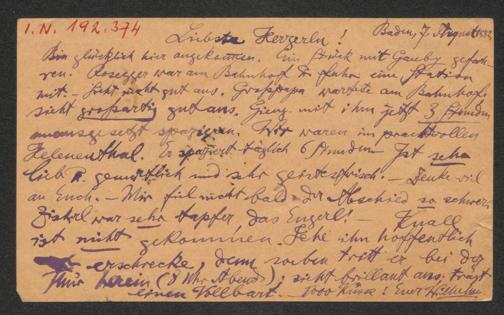 I.N. 192.374
Baden, 7. August
Liebste Herzerln!
Bin glücklich hier angekommen. Ein Stück mit Gauby gefah-
ren. Rosegger war am Bahnhof & fuhr eine Station
mit. – Sieht nicht gut aus. Grosspapa wartete am Bahnhof,
sieht großartig gut aus. Gieng mit ihm jetzt 3 Stunden
unausgesetzt spazieren. Wir waren im prachtvollen
Helenenthal. Er spaziert täglich 6 Stunden. Ist sehr
lieb & gemütlich und sehr gesprächig. – Denke viel
an Euch. – Mir fiel nicht bald der Abschied so schwer.
war sehr tapfer das Engerl! – Knall
ist nicht gekommen. Sehe ihn hoffentlich
erschrecke, denn soeben tritt er bei der
Thür herein (8 Uhr Abend); sieht brillant aus; trägt
einen Vollbart. – 1000 Küsse! Euer Wilhelm